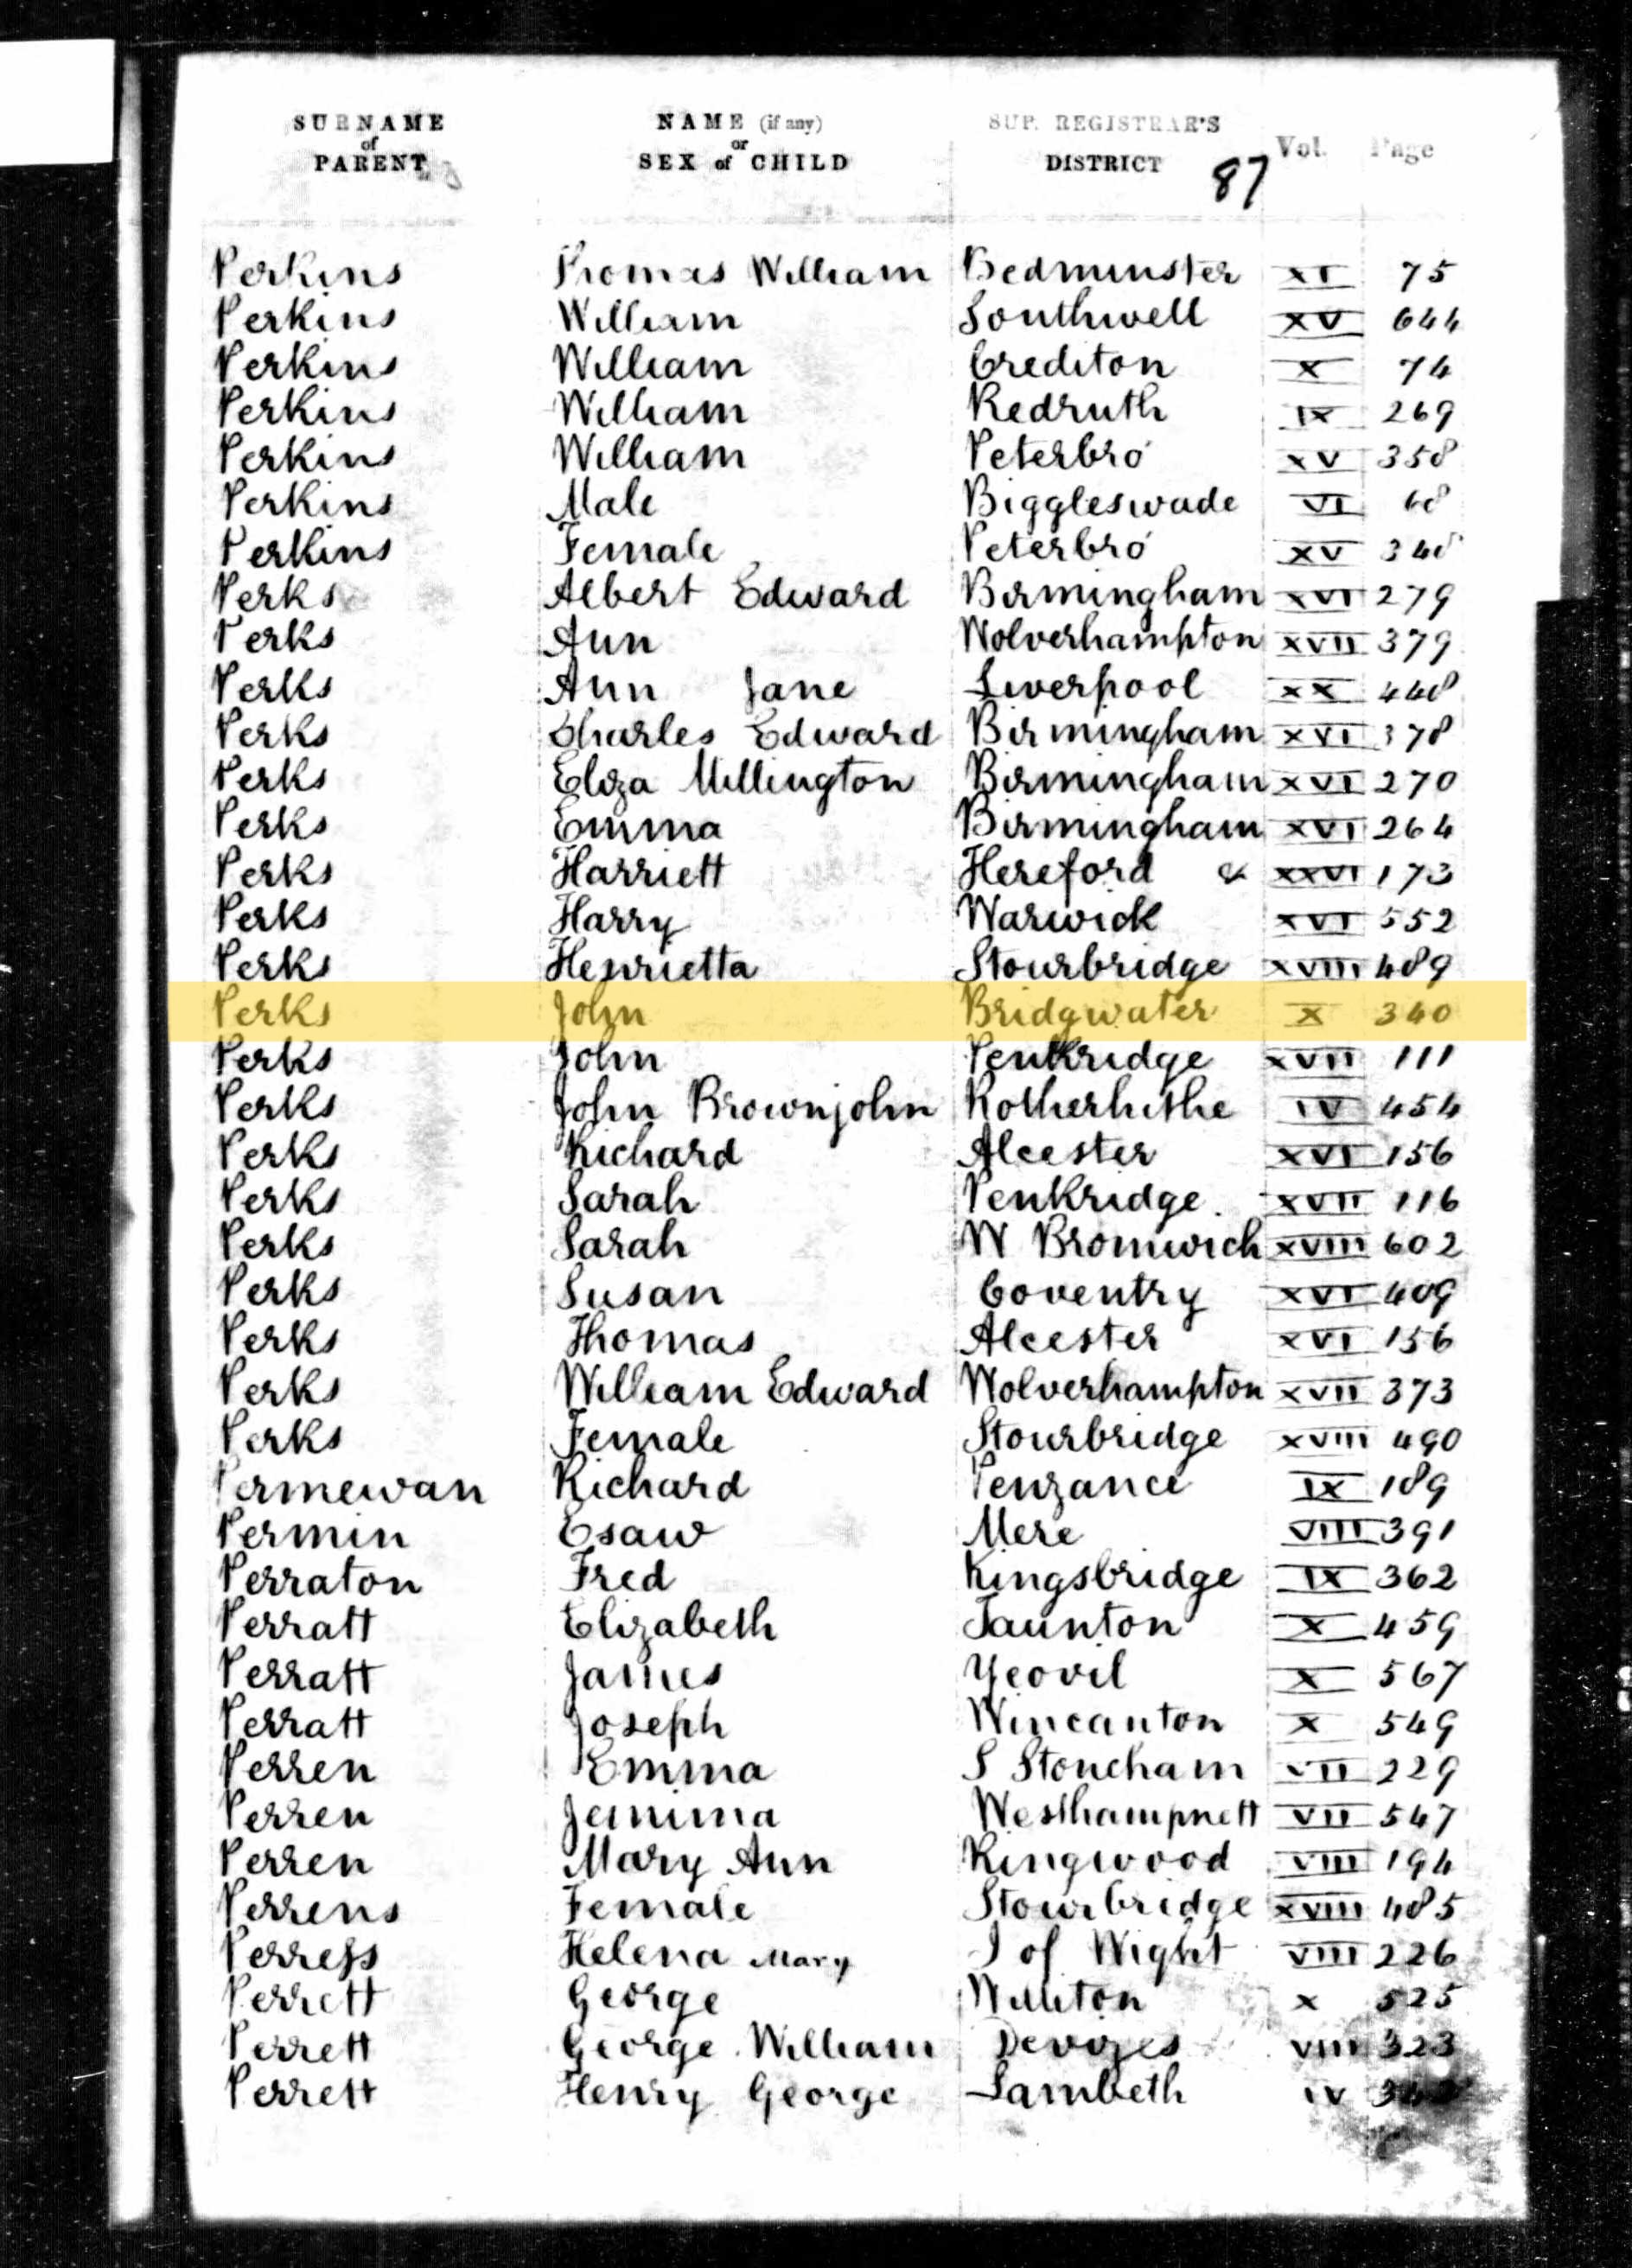 SURNAME of PARENT NAME (if any) or SEX of CHILD SUP. REGISTRAR'S DISTRICT Vol. Page
87
Perkins Thomas William Bedminster XI 75
Perkins William Southwell XV 644
Perkins William Crediton X 74
Perkins William Redruth IX 269
Perkins William Peterbro' XV 358
Perkins Male Biggleswade VI 68
Perkins Female Peterbro' XV 348
Perks Albert Edward Birmingham XVI 279
Perks Ann Wolverhampton XVII 379
Perks Ann Jane Liverpool XX 448
Perks Charles Edward Birmingham XVI 378
Perks Eliza Millington Birmingham XVI 270
Perks Emma Birmingham XVI 264
Perks Harriett Hereford & XXVI 173
Perks Harry Warwick XVI 552
Perks Henrietta Stourbridge XVIII 489
Perks John Bridgwater X 340
Perks John Penkridge XVII 111
Perks John Brownjohn Rotherhithe IV 454
Perks Richard Alcester XVI 156
Perks Sarah Penkridge. XVII 116
Perks Sarah W Bromwich XVIII 602
Perks Susan Coventry XVI 409
Perks Thomas Alcester XVI 156
Perks William Edward Wolverhampton XVII 373
Perks Female Stourbridge XVIII 490
Permewan Richard Penzance IX 189
Permin Esaw Mere VIII 391
Perraton Fred Kingsbridge IX 362
Perratt Elizabeth Taunton X 459
Perratt James Yeovil X 567
Perratt Joseph Wincanton X 549
Perren Emma S Stoneham VII 229
Perren Jemima Westhampnett VII 547
Perren Mary Ann Ringwood VIII 194
Perrens Female Stourbridge XVIII 485
Perress Helena Mary I of Wight VIII 226
Perrett George Williton X 525
Perrett George William Devizes VIII 323
Perrett Henry George Lambeth IV